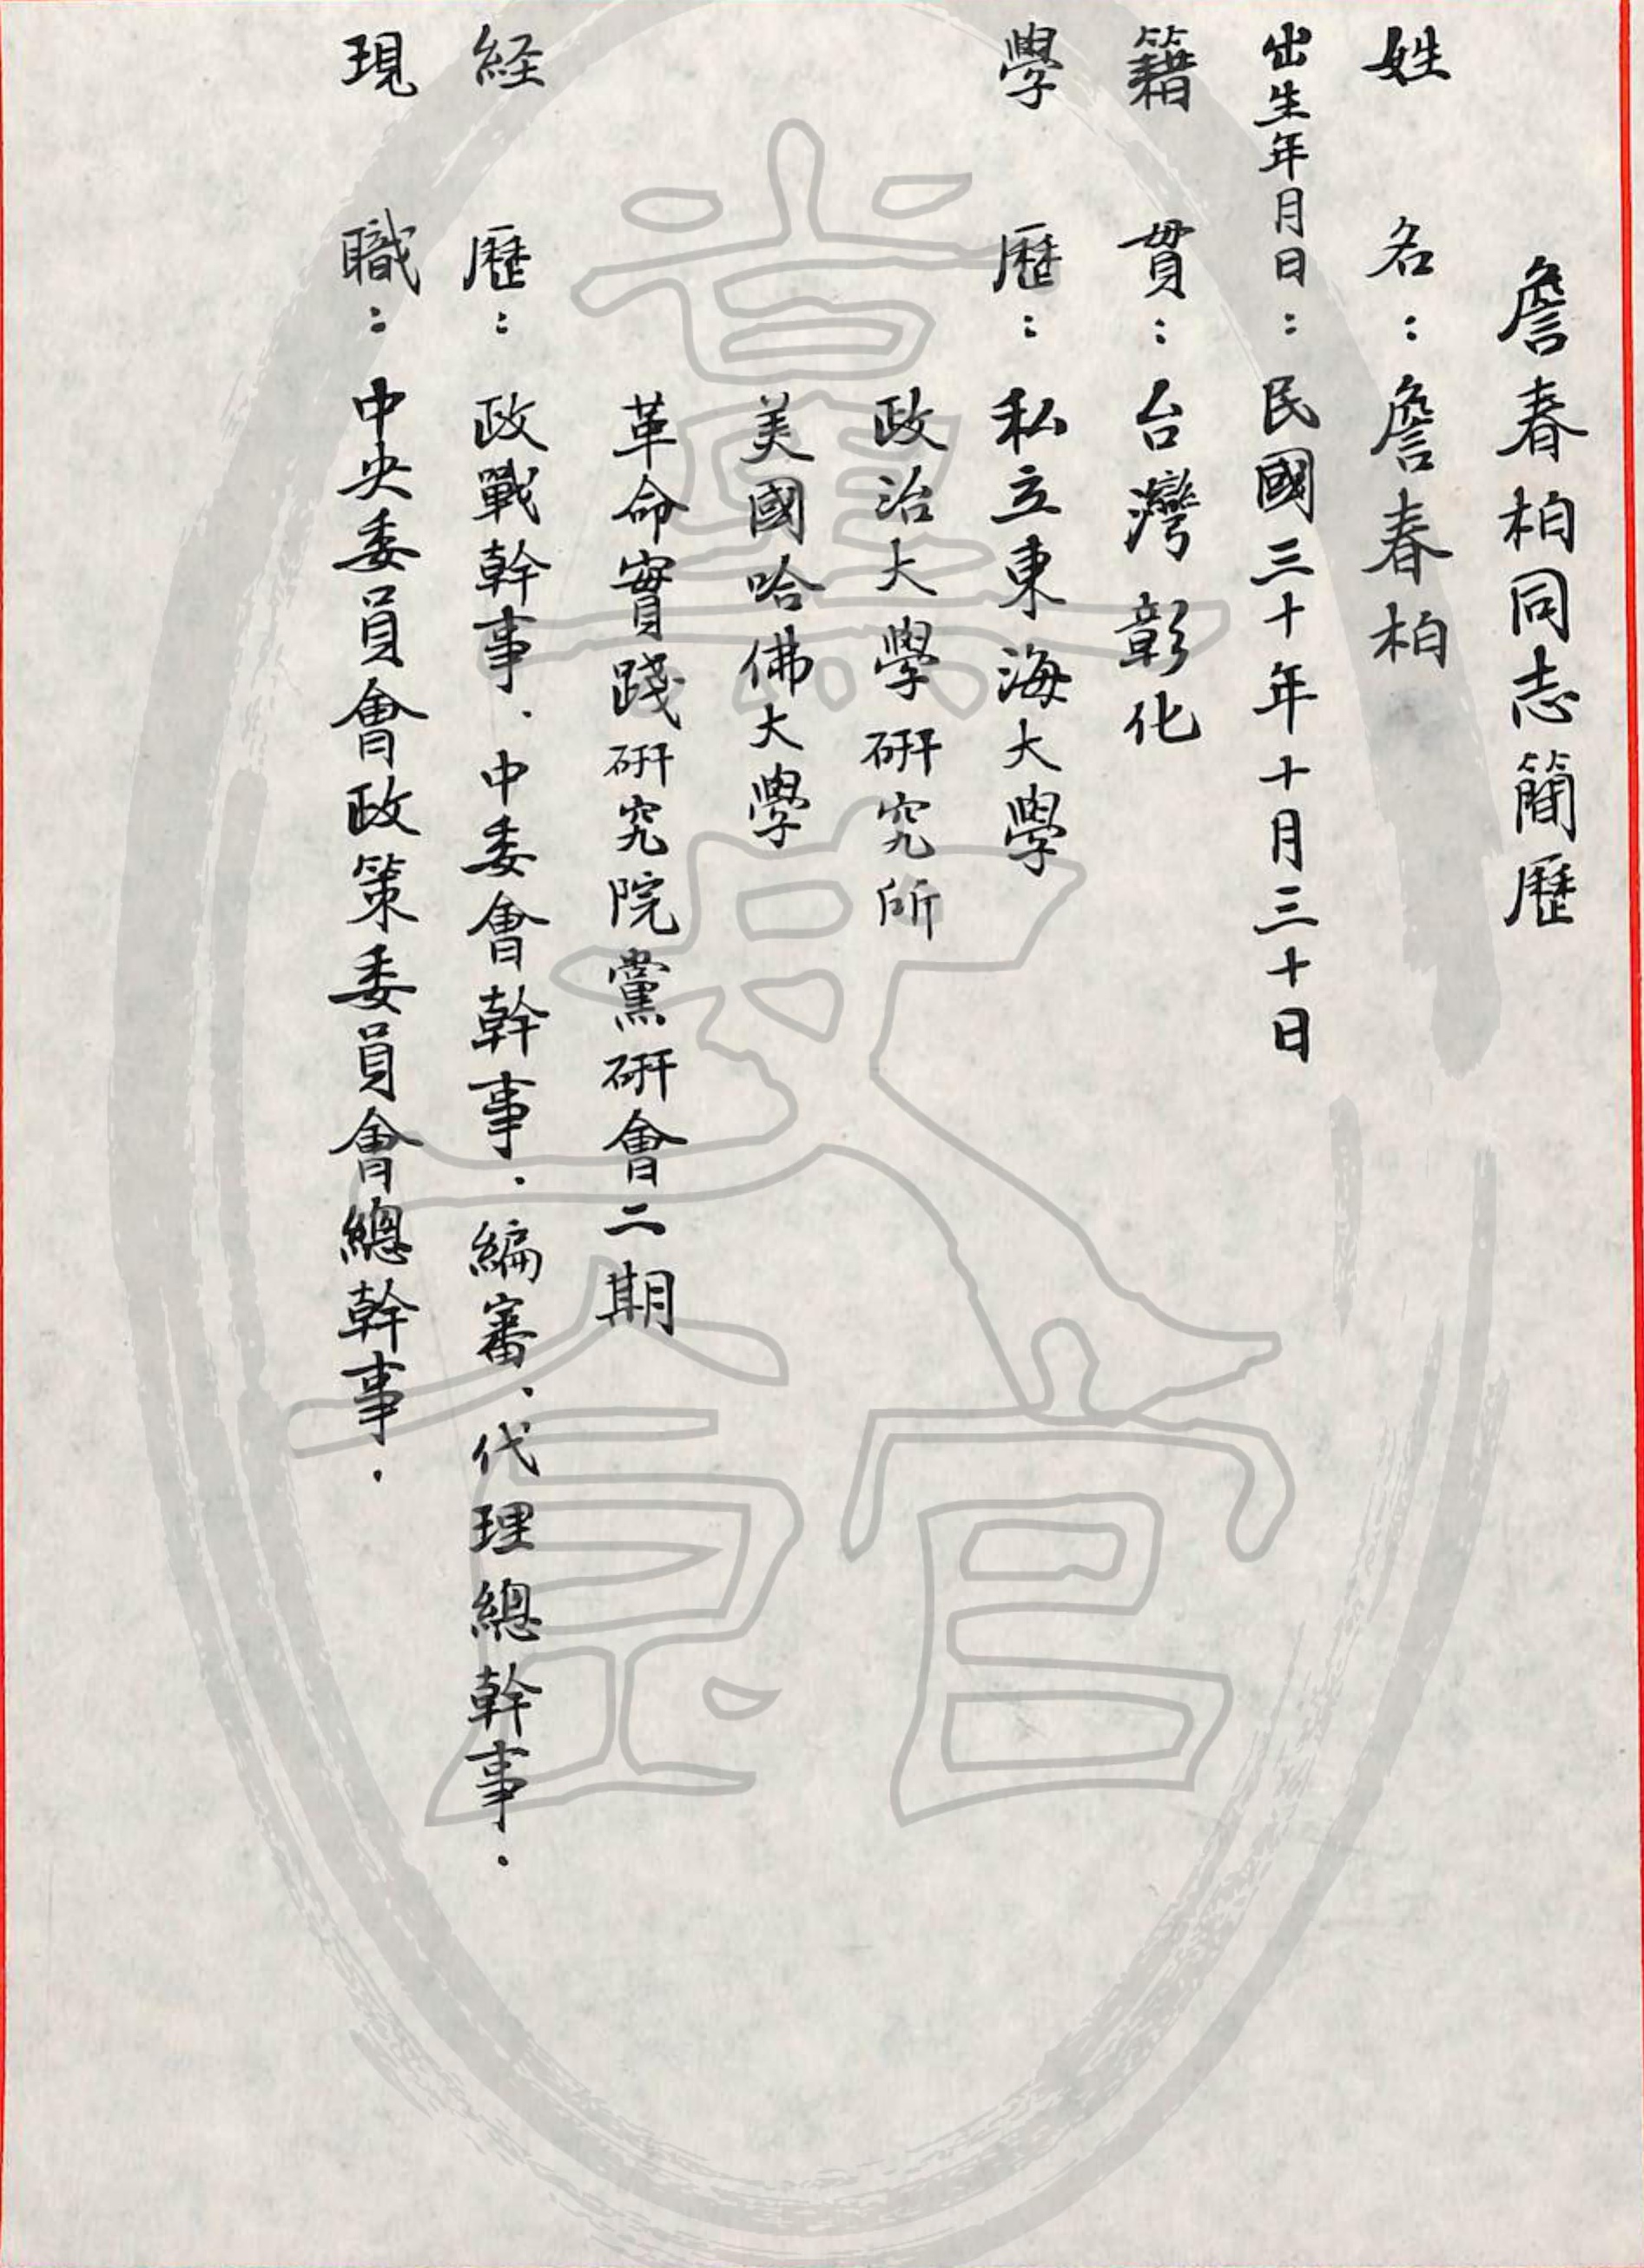 詹春柏同志簡歷
姓名：詹春柏
出生年月日：民國三十年十月三十日
籍貫：台灣彰化
學歷：私立東海大學
政治大學研究所
美國哈佛大學
革命實踐研究院黨研會二期
経歷：政戰幹事、中委會幹事、編審、代理總幹事.
現職：中央委員會政策委員會總幹事.